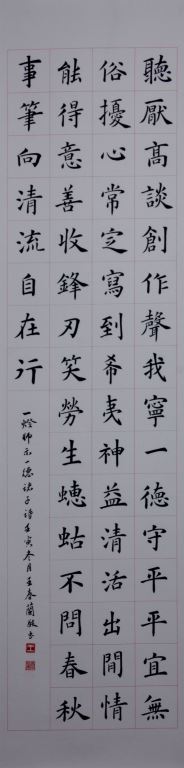 聽厭高談創作聲我寧一德守平平宜無
俗擾心常定寫到希夷神益清活出閒情
能得意善收鋒刃笑勞生蟪蛄不問春秋
事筆向清流自在行
一燈師元一德弟子詩壬寅冬月王春蘭敬書